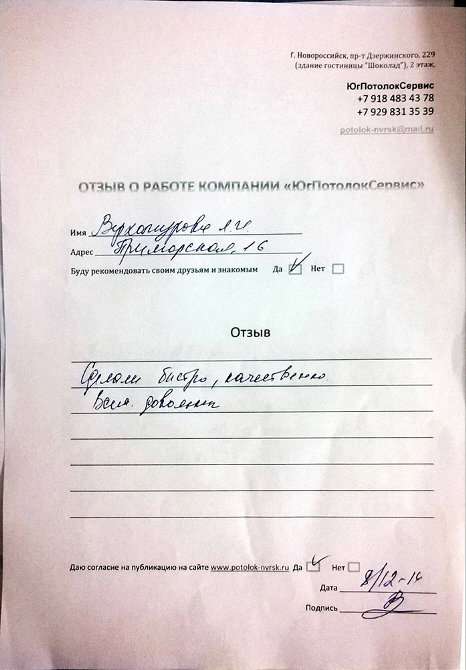 Г. Новороссийск, пр-т Дзержинского, 229
(здание гостиницы "Шоколад"), 2 этаж.
ЮгПотолокСервис
+7 918 483 43 78
+7 929 831 35 39
potolok-nvrsk@mail.ru
ОТЗЫВ О РАБОТЕ КОМПАНИИ «ЮгПотолокСервис»
Имя
Адрес Приморская, 16
Буду рекомендовать своим друзьям и знакомым Да Нет
Отзыв
Сделали быстро, качественно
Всем довольны
Даю согласие на публикацию на сайте www.potolok-nvrsk.ru Да Нет
Дата 8/12-16
Подпись